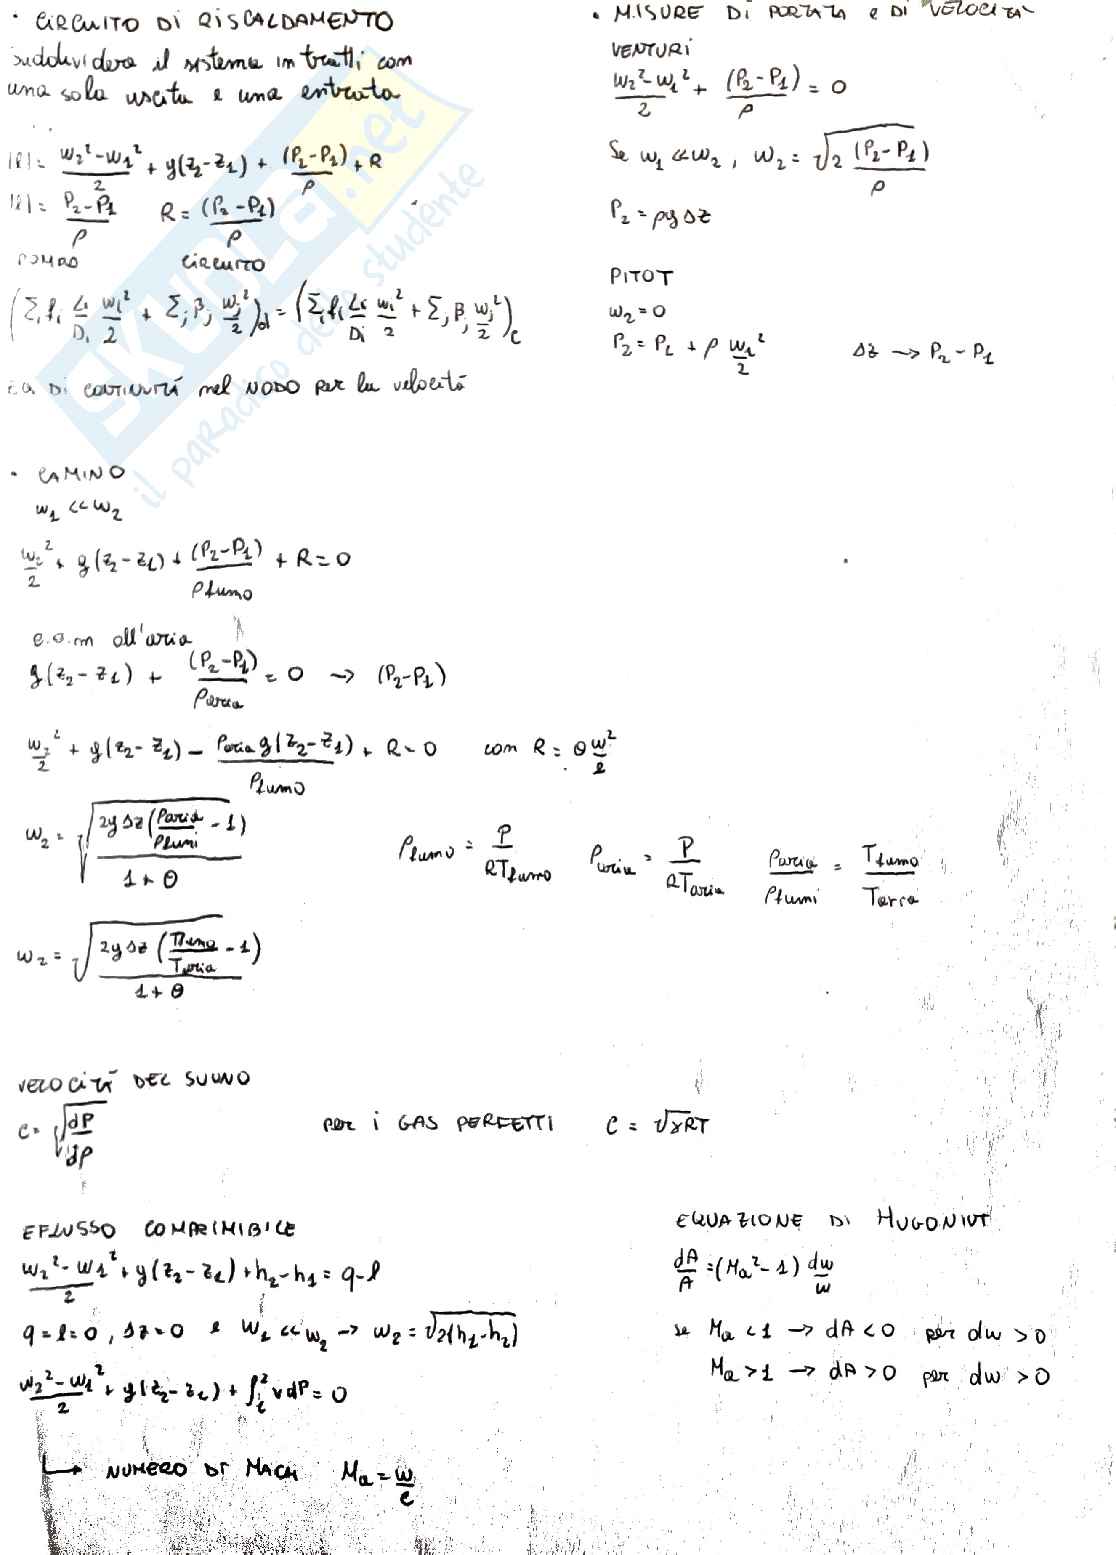 • CIRCUITO DI RISCALDAMENTO
suddividere il sistema in tratti con
una sola uscita e una entrata
|l| = (w₂² - w₁²)/2 + g(z₂ - z₁) + (P₂ - P₁)/ρ + R
|l| = (P₂ - P₁)/ρ   R = (P₂ - P₁)/ρ
POMPA   CIRCUITO
(Σᵢ fᵢ Lᵢ/Dᵢ wᵢ²/2 + Σⱼ βⱼ wⱼ²/2)d = (Σᵢ fᵢ Lᵢ/Dᵢ wᵢ²/2 + Σⱼ βⱼ wⱼ²/2)c
EQ DI CONTINUITÁ nel NODO per la velocitá
• MISURE DI PORTATA e DI VELOCITÁ
VENTURI
(w₂² - w₁²)/2 + (P₂ - P₁)/ρ = 0
Se w₁ << w₂, w₂ = √(2 (P₂ - P₁)/ρ)
P₂ = ρgΔz
PITOT
w₂ = 0
P₂ = P₁ + ρ w₁²/2   Δz → P₂ - P₁
• CAMINO
w₁ << w₂
w₂²/2 + g(z₂ - z₁) + (P₂ - P₁)/ρfumo + R = 0
e.o.m all'aria
g(z₂ - z₁) + (P₂ - P₁)/ρaria = 0 → (P₂ - P₁)
w₂²/2 + g(z₂ - z₁) - ρaria g(z₂ - z₁)/ρfumo + R = 0   con R = θ w²/2
w₂ = √(2gΔz (ρaria/ρfumi - 1)/(1 + θ))   ρfumo = P/RTfumo   ρaria = P/RTaria   ρaria/ρfumi = Tfumo/Taria
w₂ = √(2gΔz (Tfumo/Taria - 1)/(1 + θ))
VELOCITÁ DEL SUONO
c = √(dP/dρ)   per i GAS PERFETTI   c = √γRT
EFLUSSO COMPRIMIBILE
(w₂² - w₁²)/2 + g(z₂ - z₁) + h₂ - h₁ = q - l
q = l = 0, Δz = 0 e w₁ << w₂ → w₂ = √2(h₁ - h₂)
(w₂² - w₁²)/2 + g(z₂ - z₁) + ∫₁² v dP = 0
↳ NUMERO DI MACH   Ma = w/c
EQUAZIONE DI HUGONIOT
dA/A = (Ma² - 1) dw/w
se Ma < 1 → dA < 0 per dw > 0
Ma > 1 → dA > 0 per dw > 0
SKUOLA.net
il paradiso dello studente